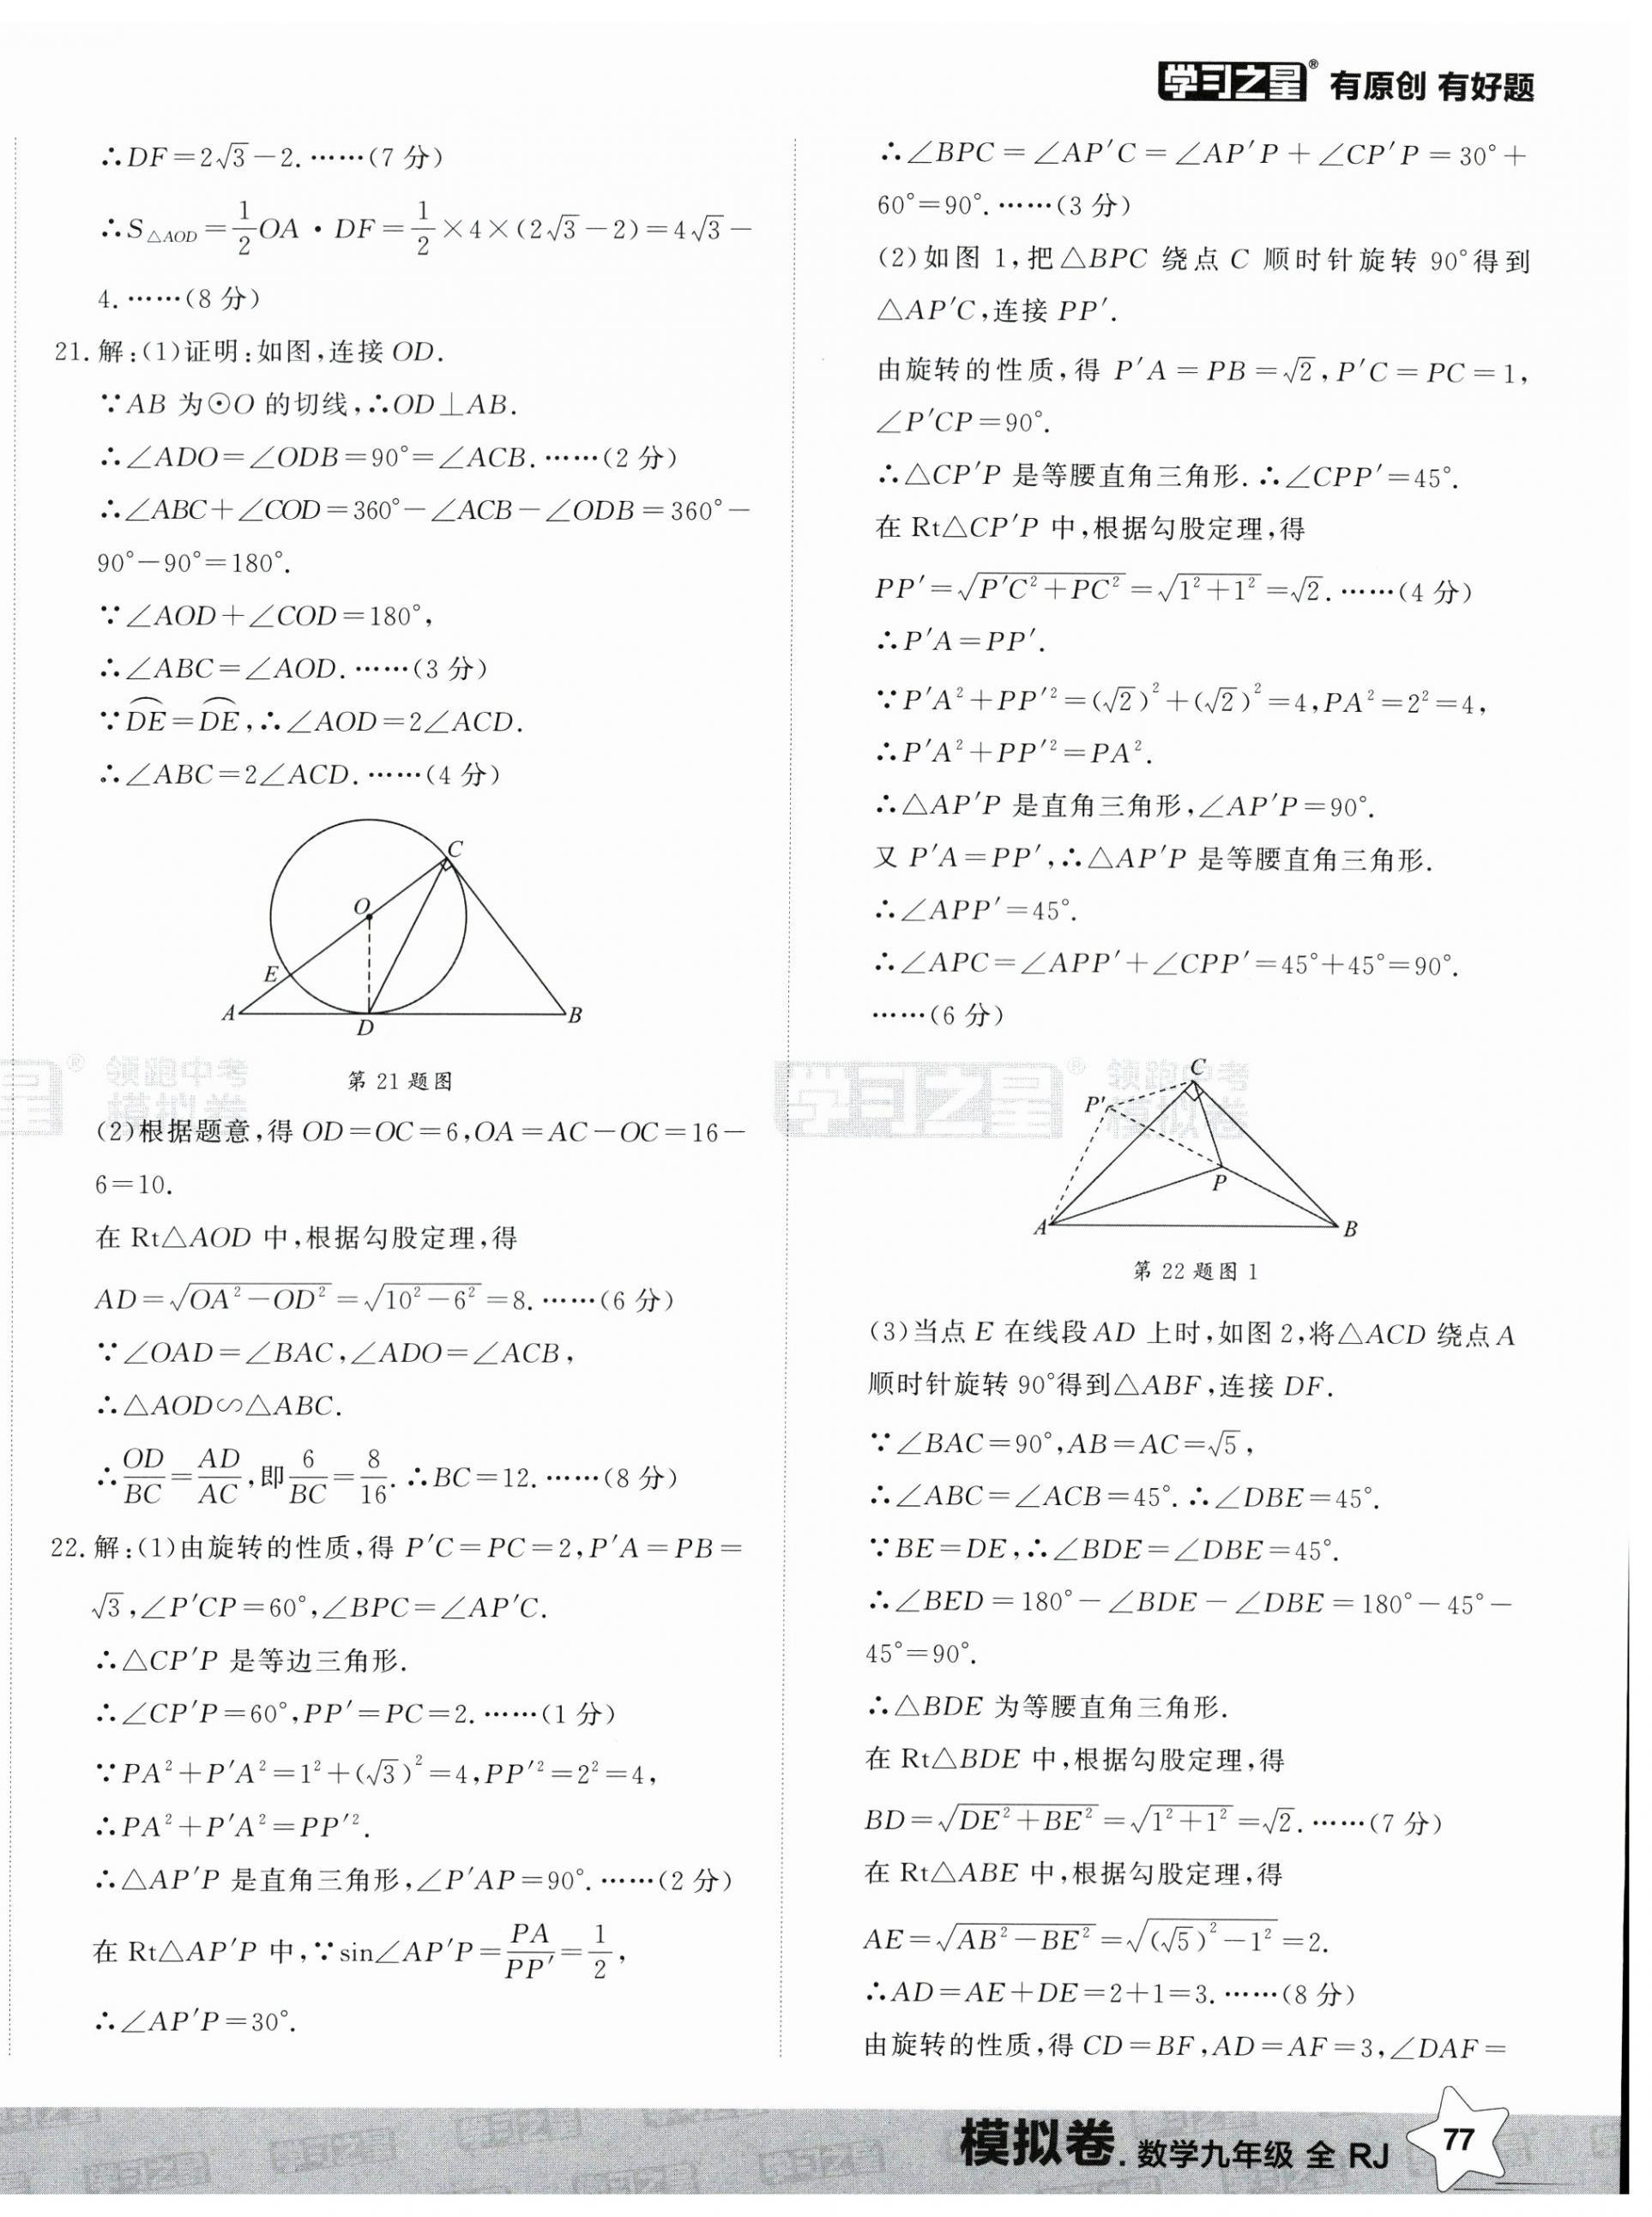 学习之星® 有原创 有好题
∴DF=2√3-2.……(7分)
∴S△AOD=1/2OA·DF=1/2×4×(2√3-2)=4√3-
4.……(8分)
21.解:(1)证明:如图,连接OD.
∵AB为⊙O的切线,∴OD⊥AB.
∴∠ADO=∠ODB=90°=∠ACB.……(2分)
∴∠ABC+∠COD=360°-∠ACB-∠ODB=360°-
90°-90°=180°.
∵∠AOD+∠COD=180°,
∴∠ABC=∠AOD.……(3分)
∵⌒DE=⌒DE,∴∠AOD=2∠ACD.
∴∠ABC=2∠ACD.……(4分)
C
O
E
A
D
B
第21题图
(2)根据题意,得OD=OC=6,OA=AC-OC=16-
6=10.
在Rt△AOD中,根据勾股定理,得
AD=√(OA²-OD²)=√(10²-6²)=8.……(6分)
∵∠OAD=∠BAC,∠ADO=∠ACB,
∴△AOD∽△ABC.
∴OD/BC=AD/AC,即6/BC=8/16.∴BC=12.……(8分)
22.解:(1)由旋转的性质,得P′C=PC=2,P′A=PB=
√3,∠P′CP=60°,∠BPC=∠AP′C.
∴△CP′P是等边三角形.
∴∠CP′P=60°,PP′=PC=2.……(1分)
∵PA²+P′A²=1²+(√3)²=4,PP′²=2²=4,
∴PA²+P′A²=PP′².
∴△AP′P是直角三角形,∠P′AP=90°.……(2分)
在Rt△AP′P中,∵sin∠AP′P=PA/PP′=1/2,
∴∠AP′P=30°.
∴∠BPC=∠AP′C=∠AP′P+∠CP′P=30°+
60°=90°.……(3分)
(2)如图1,把△BPC绕点C顺时针旋转90°得到
△AP′C,连接PP′.
由旋转的性质,得P′A=PB=√2,P′C=PC=1,
∠P′CP=90°.
∴△CP′P是等腰直角三角形.∴∠CPP′=45°.
在Rt△CP′P中,根据勾股定理,得
PP′=√(P′C²+PC²)=√(1²+1²)=√2.……(4分)
∴P′A=PP′.
∵P′A²+PP′²=(√2)²+(√2)²=4,PA²=2²=4,
∴P′A²+PP′²=PA².
∴△AP′P是直角三角形,∠AP′P=90°.
又P′A=PP′,∴△AP′P是等腰直角三角形.
∴∠APP′=45°.
∴∠APC=∠APP′+∠CPP′=45°+45°=90°.
……(6分)
C
P′
P
A
B
第22题图1
(3)当点E在线段AD上时,如图2,将△ACD绕点A
顺时针旋转90°得到△ABF,连接DF.
∵∠BAC=90°,AB=AC=√5,
∴∠ABC=∠ACB=45°.∴∠DBE=45°.
∵BE=DE,∴∠BDE=∠DBE=45°.
∴∠BED=180°-∠BDE-∠DBE=180°-45°-
45°=90°.
∴△BDE为等腰直角三角形.
在Rt△BDE中,根据勾股定理,得
BD=√(DE²+BE²)=√(1²+1²)=√2.……(7分)
在Rt△ABE中,根据勾股定理,得
AE=√(AB²-BE²)=√((√5)²-1²)=2.
∴AD=AE+DE=2+1=3.……(8分)
由旋转的性质,得CD=BF,AD=AF=3,∠DAF=
学习之星® 领跑中考
模拟卷
模拟卷.数学九年级 全 RJ 77